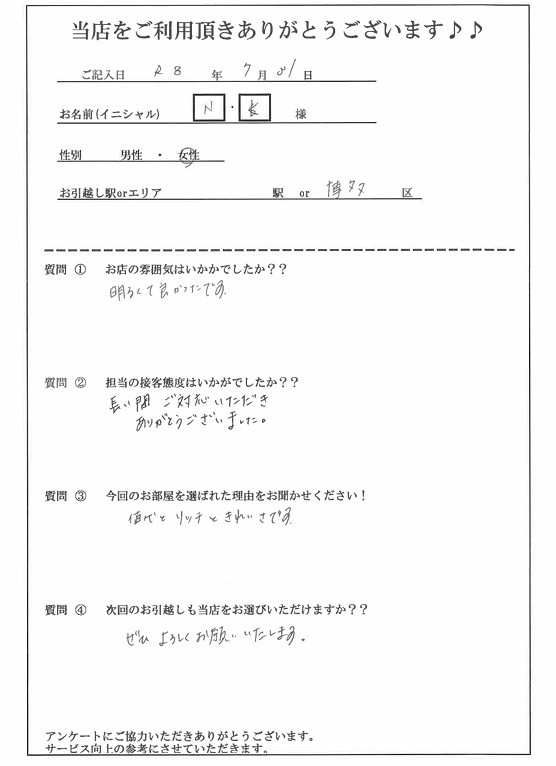 当店をご利用頂きありがとうございます♪♪
ご記入日 R8 年 7月 31日
お名前(イニシャル) N・K 様
性別 男性 ・ 女性
お引越し駅orエリア 駅 or 博多 区
質問 ① お店の雰囲気はいかかでしたか？？
明るくて良かったです。
質問 ② 担当の接客態度はいかがでしたか？？
長い間 ご対応いただき
ありがとうございました。
質問 ③ 今回のお部屋を選ばれた理由をお聞かせください！
値段と リッチと きれいさです。
質問 ④ 次回のお引越しも当店をお選びいただけますか？？
ぜひ よろしくお願いいたします。
アンケートにご協力いただきありがとうございます。
サービス向上の参考にさせていただきます。